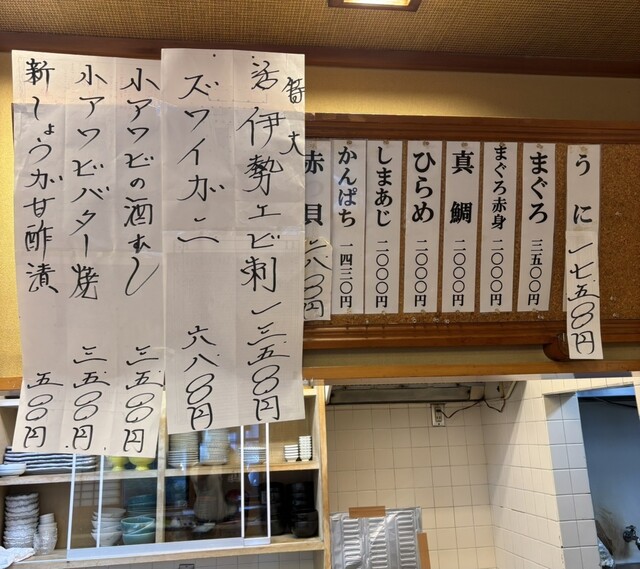 うに 一七五〇〇円
まぐろ 三五〇〇円
まぐろ赤身 二〇〇〇円
真鯛 二〇〇〇円
ひらめ 二〇〇〇円
しまあじ 二〇〇〇円
かんぱち 一四三〇円
赤貝
特大
活伊勢エビ刺 一三五〇〇円
ズワイガニ 六八〇〇円
小アワビの酒むし 三五〇〇円
小アワビバター焼 三五〇〇円
新しょうが甘酢漬 五〇〇円